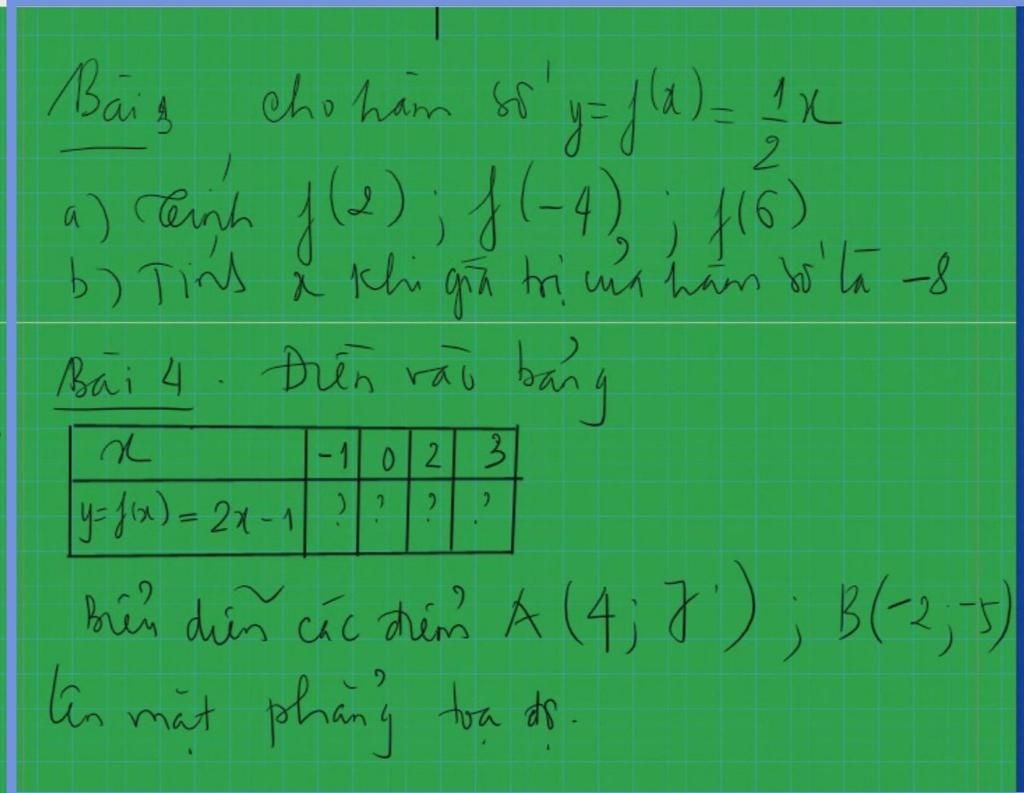 Bài 3 cho hàm số y = f(x) = 1/2 x
a) Tính f(2) ; f(-4) ; f(6)
b) Tính x khi giá trị của hàm số là -8
Bài 4. Điền vào bảng
x -1 0 2 3
y = f(x) = 2x - 1 ? ? ? ?
Biểu diễn các điểm A (4; 7) ; B(-2; -5)
lên mặt phẳng tọa độ.